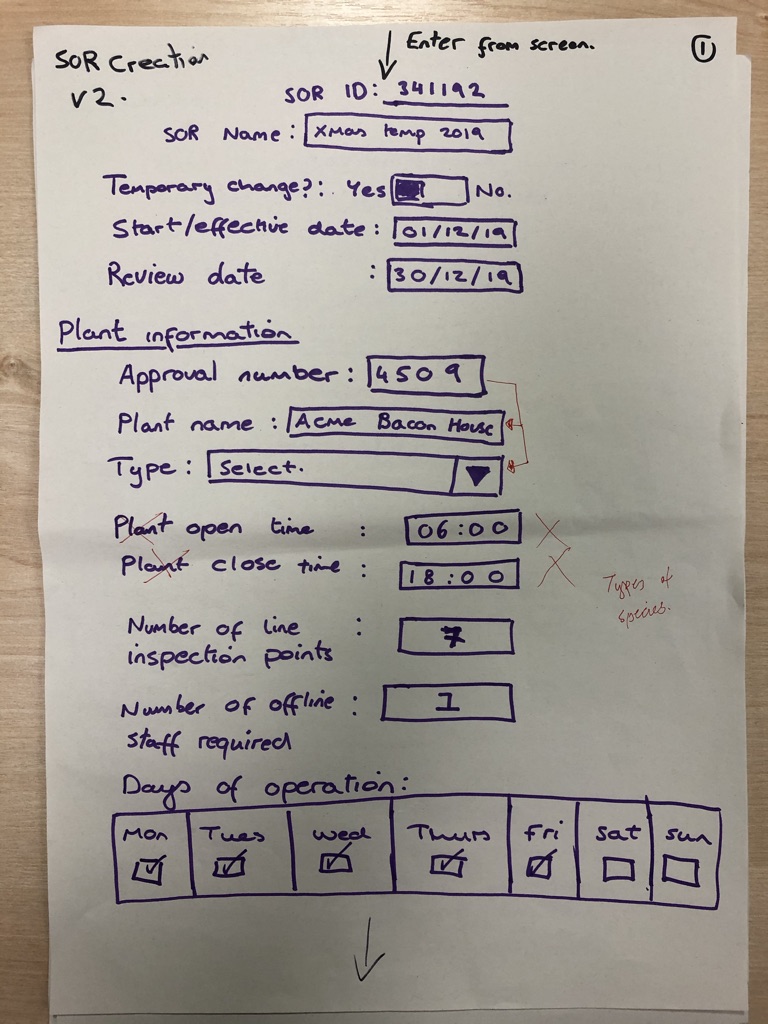 SOR Creation
v2.
Enter from screen.
1
SOR ID: 341192
SOR Name: Xmas temp 2019
Temporary change?: Yes No.
Start/effective date: 01/12/19
Review date : 30/12/19
Plant information
Approval number: 4509
Plant name: Acme Bacon House
Type: Select.
Plant open time : 06:00
Plant close time : 18:00
Types of
species.
Number of line : 7
inspection points
Number of offline : 1
staff required
Days of operation:
Mon Tues Wed Thurs Fri Sat Sun